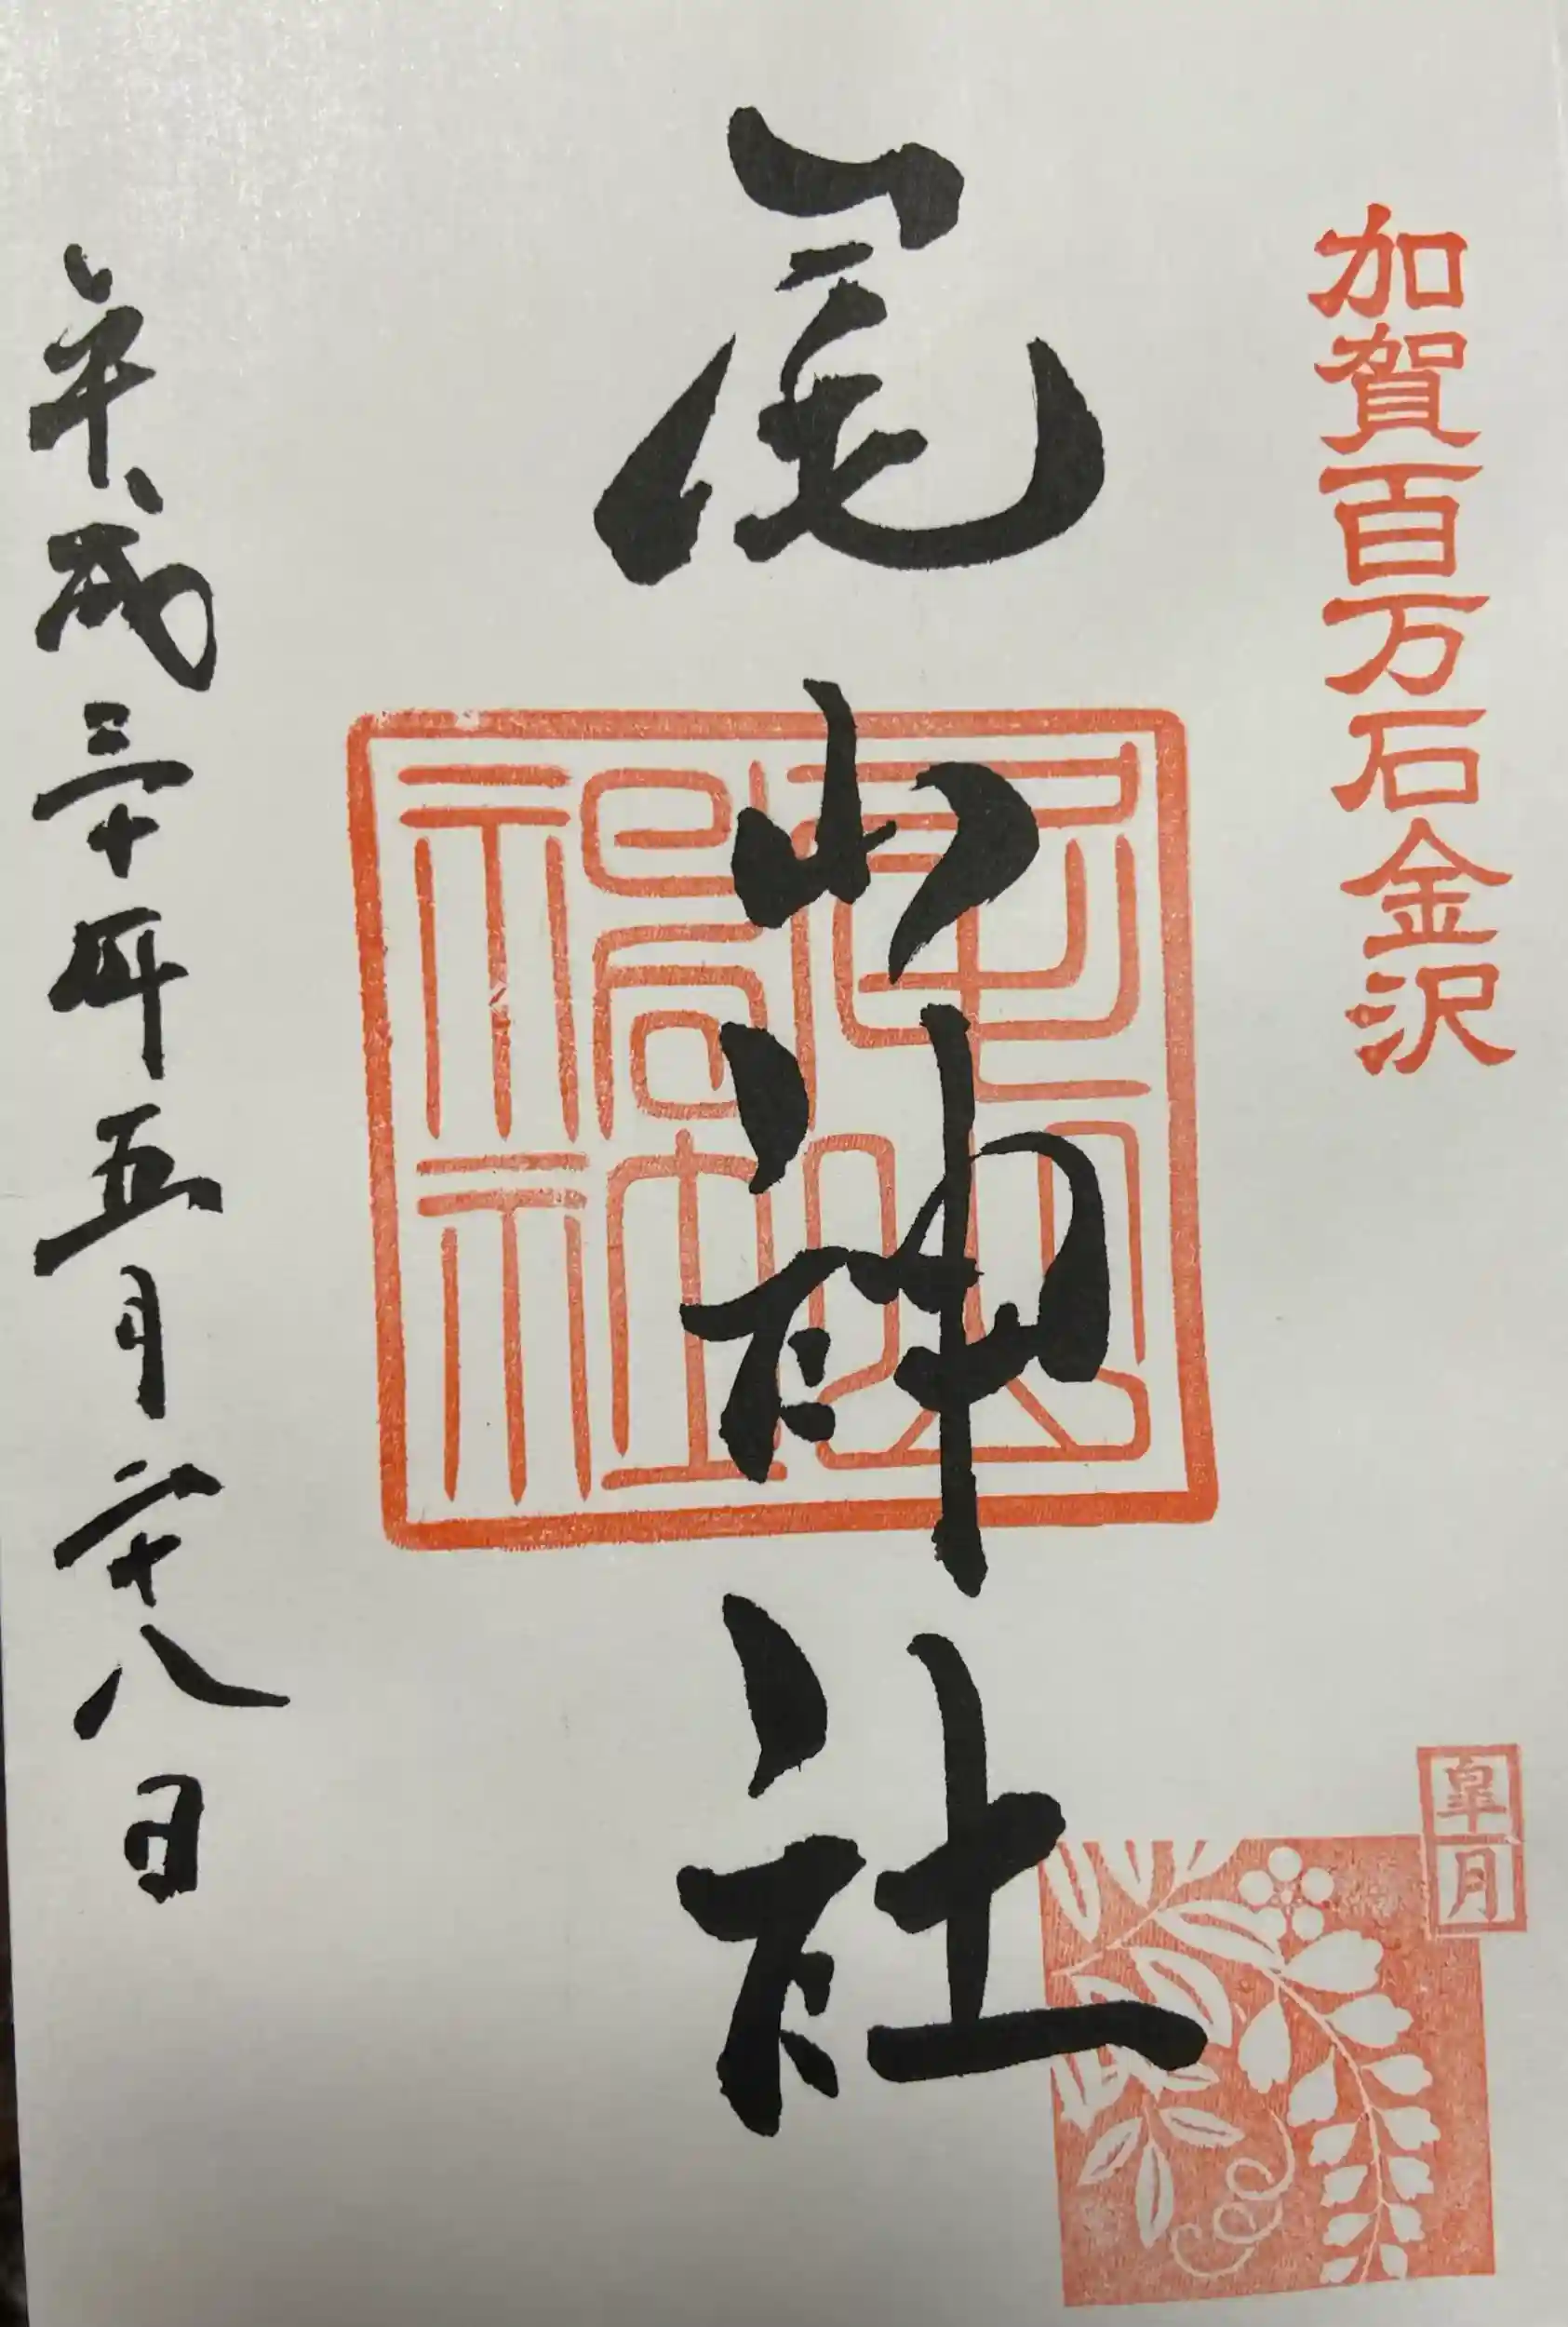 加賀百万石金沢
皐月
尾山神社
尾山神社
平成三十年五月二十八日